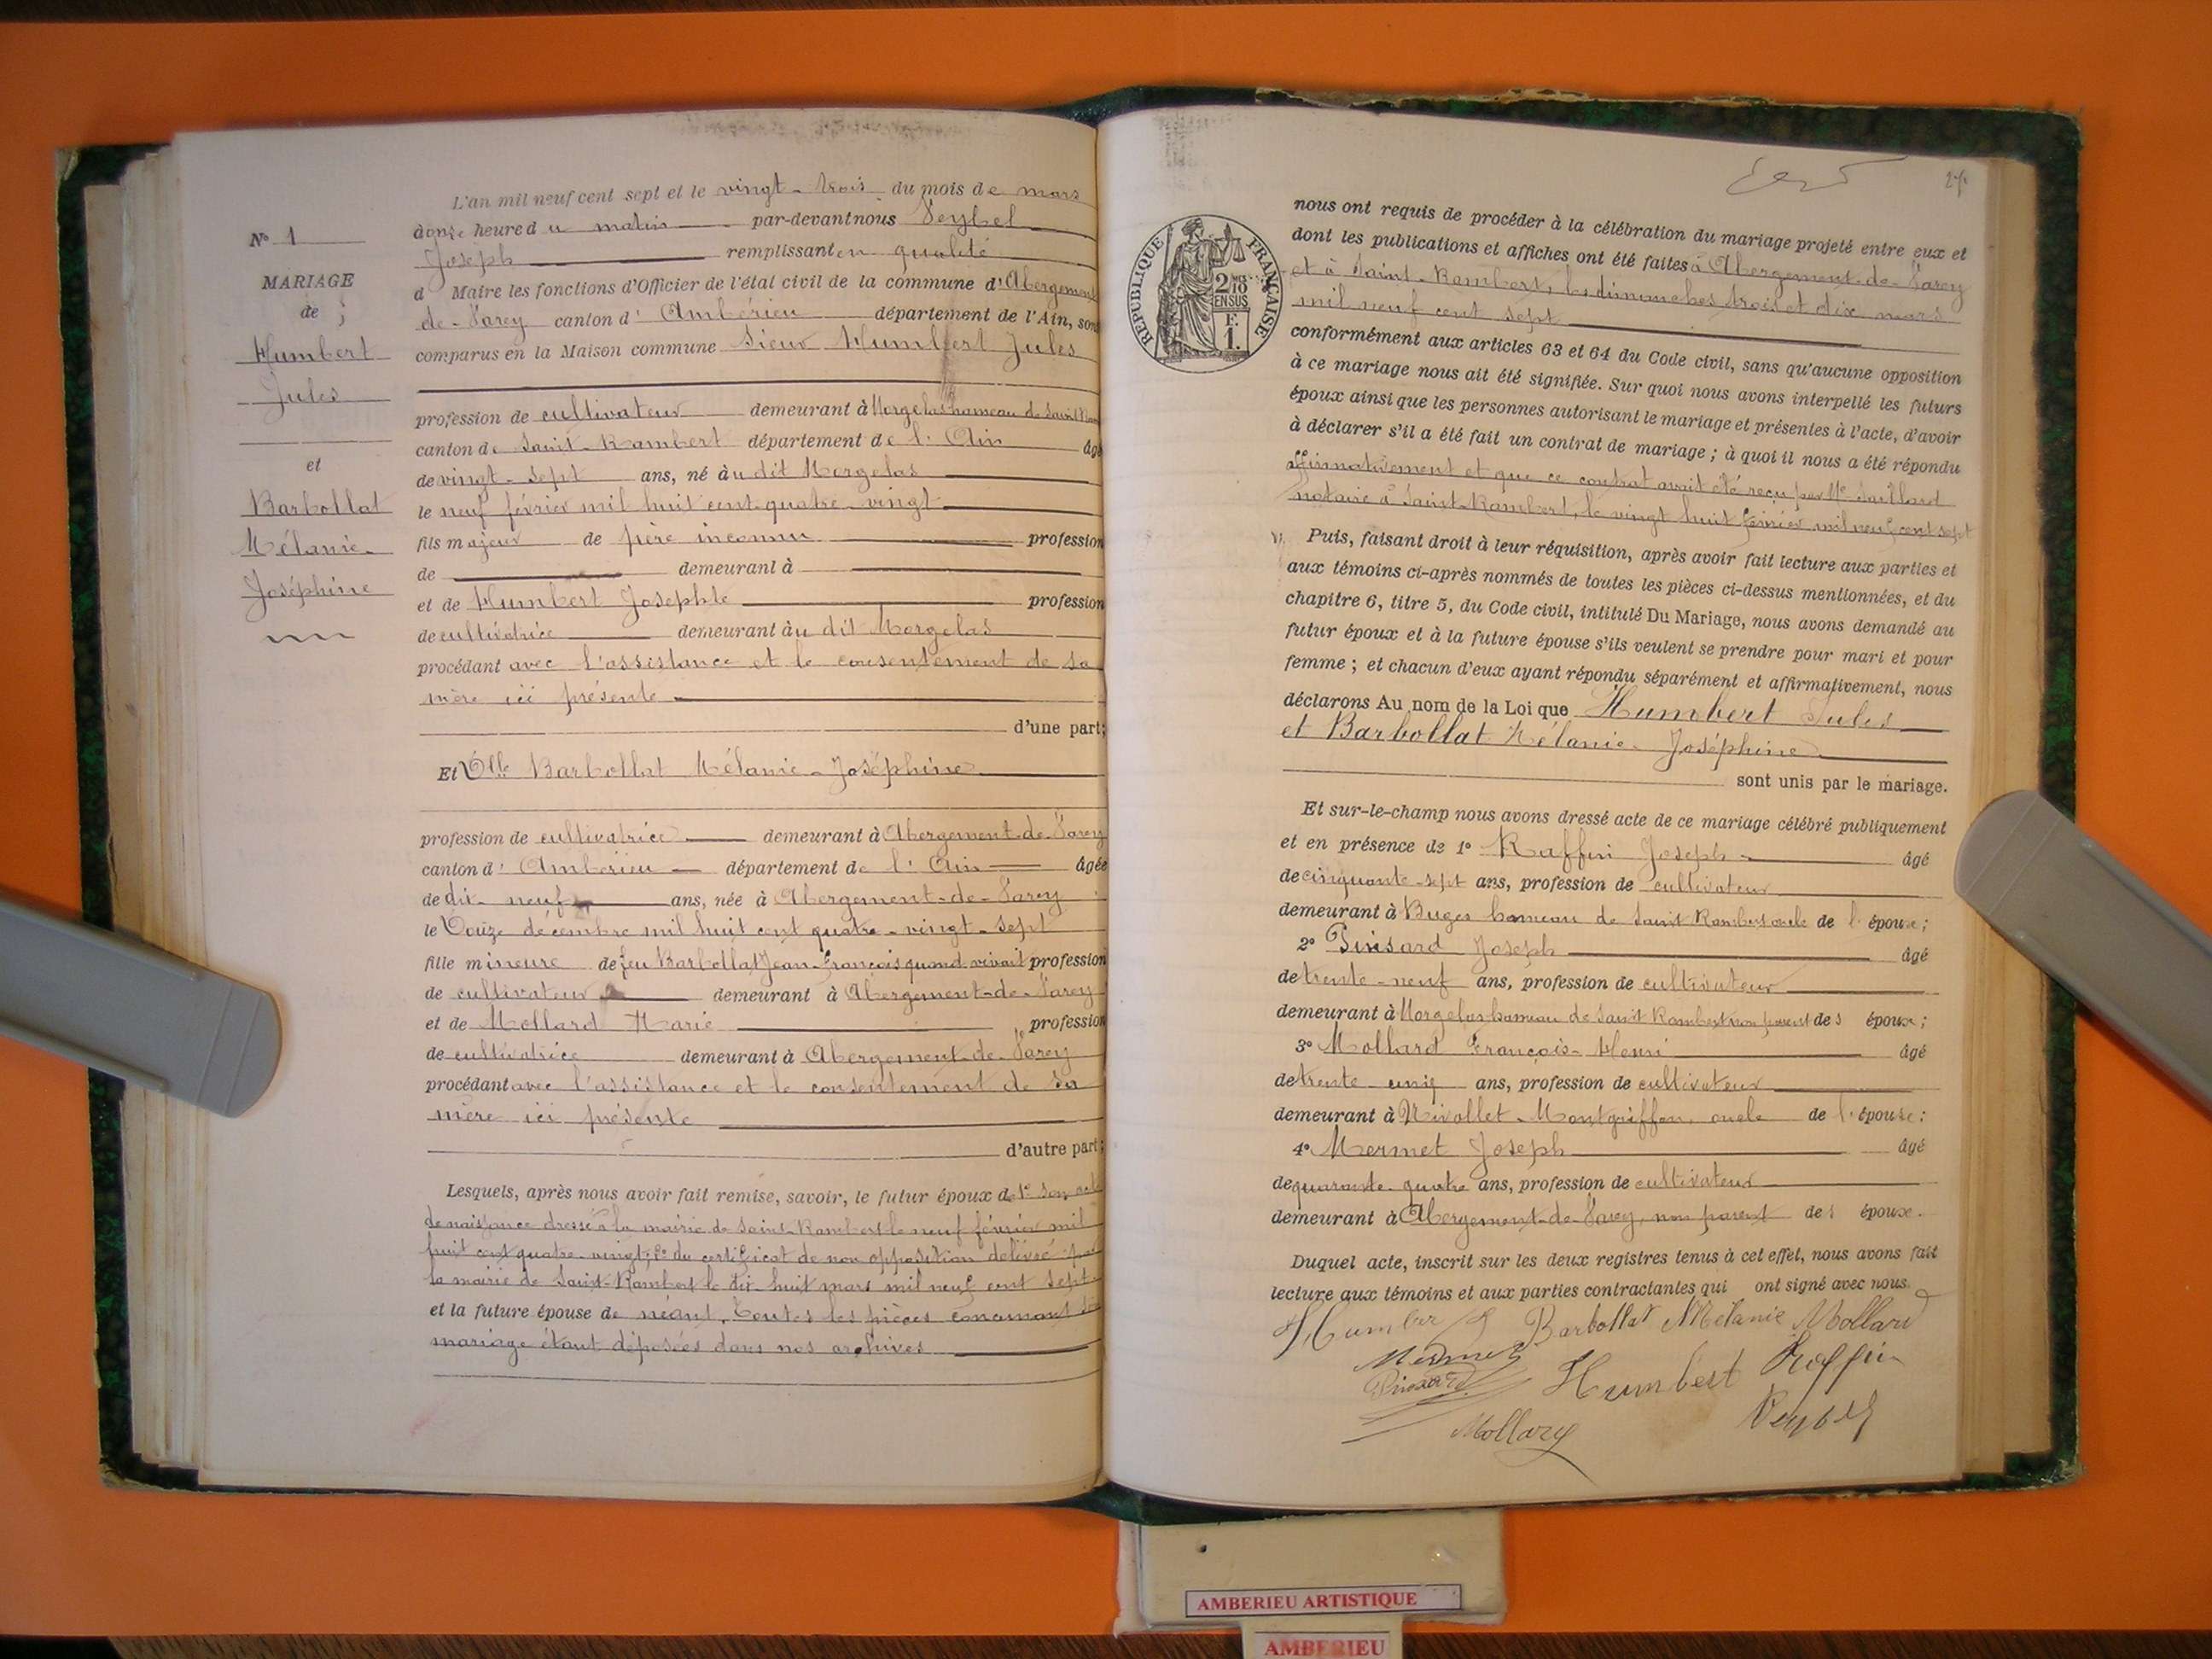 L'an mil neuf cent sept et le vingt-trois du mois de mars
à onze heure du matin par-devant nous Veybel
Joseph remplissant en qualité
d Maire les fonctions d'Officier de l'état civil de la commune d'Abergement
de-Varey canton d'Ambérieu département de l'Ain, sont
comparus en la Maison commune Sieur Humbert Jules
profession de cultivateur demeurant à Morgelas hameau de Saint
canton de Saint-Rambert département de l'Ain âgé
de vingt-sept ans, né au dit Morgelas
le neuf février mil huit cent quatre-vingt
fils majeur de père inconnu profession
de demeurant à
et de Humbert Josephte profession
de cultivatrice demeurant au dit Morgelas
procédant avec l'assistance et le consentement de sa
mère ici présente
d'une part;
Et Dlle Barbollat Mélanie-Joséphine
profession de cultivatrice demeurant à Abergement-de-Varey
canton d'Ambérieu département de l'Ain âgée
de dix-neuf ans, née à Abergement-de-Varey
le Douze décembre mil huit cent quatre-vingt-sept
fille mineure de feu Barbollat Jean-François quand vivait profession
de cultivateur demeurant à Abergement-de-Varey
et de Mollard Marie profession
de cultivatrice demeurant à Abergement-de-Varey
procédant avec l'assistance et le consentement de sa
mère ici présente
d'autre part;
Lesquels, après nous avoir fait remise, savoir, le futur époux de 1° son acte
de naissance dressé à la mairie de Saint-Rambert le neuf février mil
huit cent quatre-vingt; 2° du certificat de non opposition délivré par
la mairie de Saint-Rambert le dix-huit mars mil neuf cent sept
et la future épouse de néant. Toutes les pièces concernant
mariage étant déposées dans nos archives
N° 1
MARIAGE
de
Humbert
Jules
et
Barbollat
Mélanie-
Joséphine
27
RÉPUBLIQUE FRANÇAISE
2/10
EN SUS
F.
1.
nous ont requis de procéder à la célébration du mariage projeté entre eux et
dont les publications et affiches ont été faites à Abergement-de-Varey
et à Saint-Rambert, les dimanches trois et dix mars
mil neuf cent sept
conformément aux articles 63 et 64 du Code civil, sans qu'aucune opposition
à ce mariage nous ait été signifiée. Sur quoi nous avons interpellé les futurs
époux ainsi que les personnes autorisant le mariage et présentes à l'acte, d'avoir
à déclarer s'il a été fait un contrat de mariage; à quoi il nous a été répondu
affirmativement et que ce contrat avait été reçu par Me Saillard
notaire à Saint-Rambert, le vingt huit février mil neuf cent sept
Puis, faisant droit à leur réquisition, après avoir fait lecture aux parties et
aux témoins ci-après nommés de toutes les pièces ci-dessus mentionnées, et du
chapitre 6, titre 5, du Code civil, intitulé Du Mariage, nous avons demandé au
futur époux et à la future épouse s'ils veulent se prendre pour mari et pour
femme; et chacun d'eux ayant répondu séparément et affirmativement, nous
déclarons Au nom de la Loi que Humbert Jules
et Barbollat Mélanie-Joséphine
sont unis par le mariage.
Et sur-le-champ nous avons dressé acte de ce mariage célébré publiquement
et en présence de 1° Raffin Joseph âgé
de cinquante-sept ans, profession de cultivateur
demeurant à Buges hameau de Saint Rambert oncle de l'épouse;
2° Pinsard Joseph âgé
de trente-neuf ans, profession de cultivateur
demeurant à Morgelas hameau de Saint Rambert non parent des époux;
3° Mollard François-Henri âgé
de trente-cinq ans, profession de cultivateur
demeurant à Nivollet-Montgriffon, oncle de l'épouse;
4° Mermet Joseph âgé
de quarante-quatre ans, profession de cultivateur
demeurant à Abergement-de-Varey, non parent des époux.
Duquel acte, inscrit sur les deux registres tenus à cet effet, nous avons fait
lecture aux témoins et aux parties contractantes qui ont signé avec nous.
Humbert J Barbollat Mélanie Mollard
Mermet
Pinsard
Humbert Raffin
Mollard
Veybel
AMBERIEU ARTISTIQUE
AMBERIEU